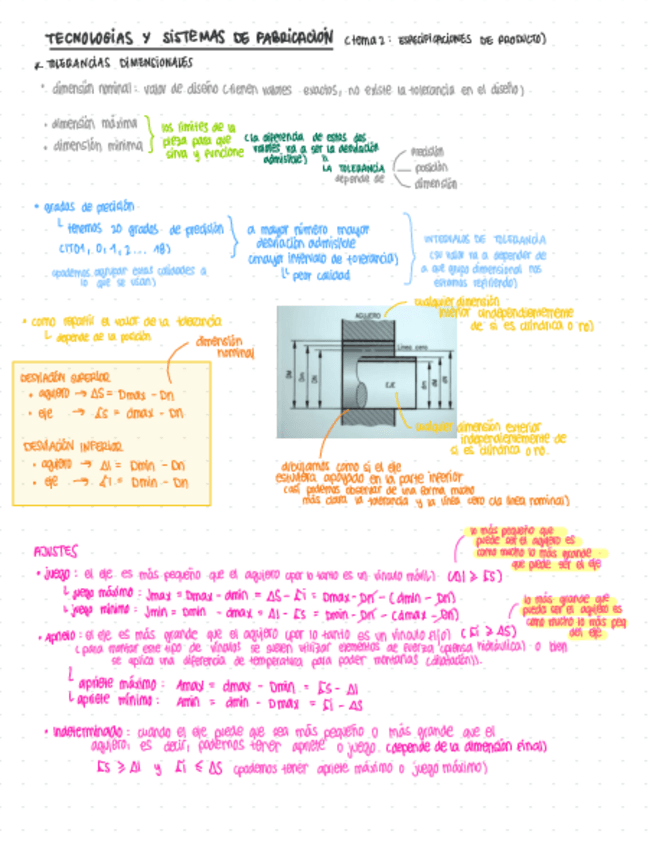 TECNOLOGÍAS Y SISTEMAS DE FABRICACIÓN (tema 2: ESPECIFICACIONES DE PRODUCTO)
TOLERANCIAS DIMENSIONALES
• dimensión nominal: valor de diseño (tienen valores exactos, no existe la tolerancia en el diseño)
• dimensión máxima
• dimensión mínima
los límites de la
pieza para que
sirva y funcione
(la diferencia de estas dos
valores va a ser la desviación
admisible)
LA TOLERANCIA
depende de
precisión
posición
dimensión
• grados de precisión
tenemos 20 grados de precisión
(IT01, 0, 1, 2 ... 18)
(podemos agrupar estas calidades a
lo que se usan)
a mayor número mayor
desviación admisible
(mayor intervalo de tolerancia)
peor calidad
INTERVALOS DE TOLERANCIA
(su valor va a depender de
a que grupo dimensional nos
estamos refiriendo)
• como repartir el valor de la tolerancia
depende de la posición
dimensión
nominal
DESVIACIÓN SUPERIOR
• agujero → ΔS = Dmax - Dn
• eje → Es = dmax - Dn
DESVIACIÓN INFERIOR
• agujero → ΔI = Dmin - Dn
• eje → Ei = Dmin - Dn
AGUJERO
Línea cero
EJE
cualquier dimensión
interior (independientemente
de si es cilíndrica o no)
cualquier dimensión exterior
independientemente de
si es cilíndrica o no.
dibujamos como si el eje
estuviera apoyado en la parte inferior
(así podemos observar de una forma mucho
más clara la tolerancia y la línea cero (la línea nominal)
AJUSTES
• juego: el eje es más pequeño que el agujero (por lo tanto es un vínculo móvil) (ΔI ≥ Es)
juego máximo: Jmax = Dmax - dmin = ΔS - Ei = Dmax - Dn - (dmin - Dn)
juego mínimo: Jmin = Dmin - dmax = ΔI - Es = Dmin - Dn - (dmax - Dn)
lo más pequeño que
puede ser el agujero es
como mucho lo más grande
que puede ser el eje
• Aprieto: el eje es más grande que el agujero (por lo tanto es un vínculo fijo) (Ei ≥ ΔS)
(para montar este tipo de vínculos se suelen utilizar elementos de fuerza (prensa hidráulica) o bien
se aplica una diferencia de temperatura para poder montarlas (dilatación)).
lo más grande que
pueda ser el agujero es
como mucho lo más peq
del eje
apriete máximo: Amax = dmax - Dmin = Es - ΔI
apriete mínimo: Amin = dmin - Dmax = Ei - ΔS
• Indeterminado: cuando el eje puede que sea más pequeño o más grande que el
agujero, es decir, podemos tener apriete o juego. (depende de la dimensión final)
Es ≥ ΔI y Ei ≤ ΔS (podemos tener apriete máximo o juego máximo)